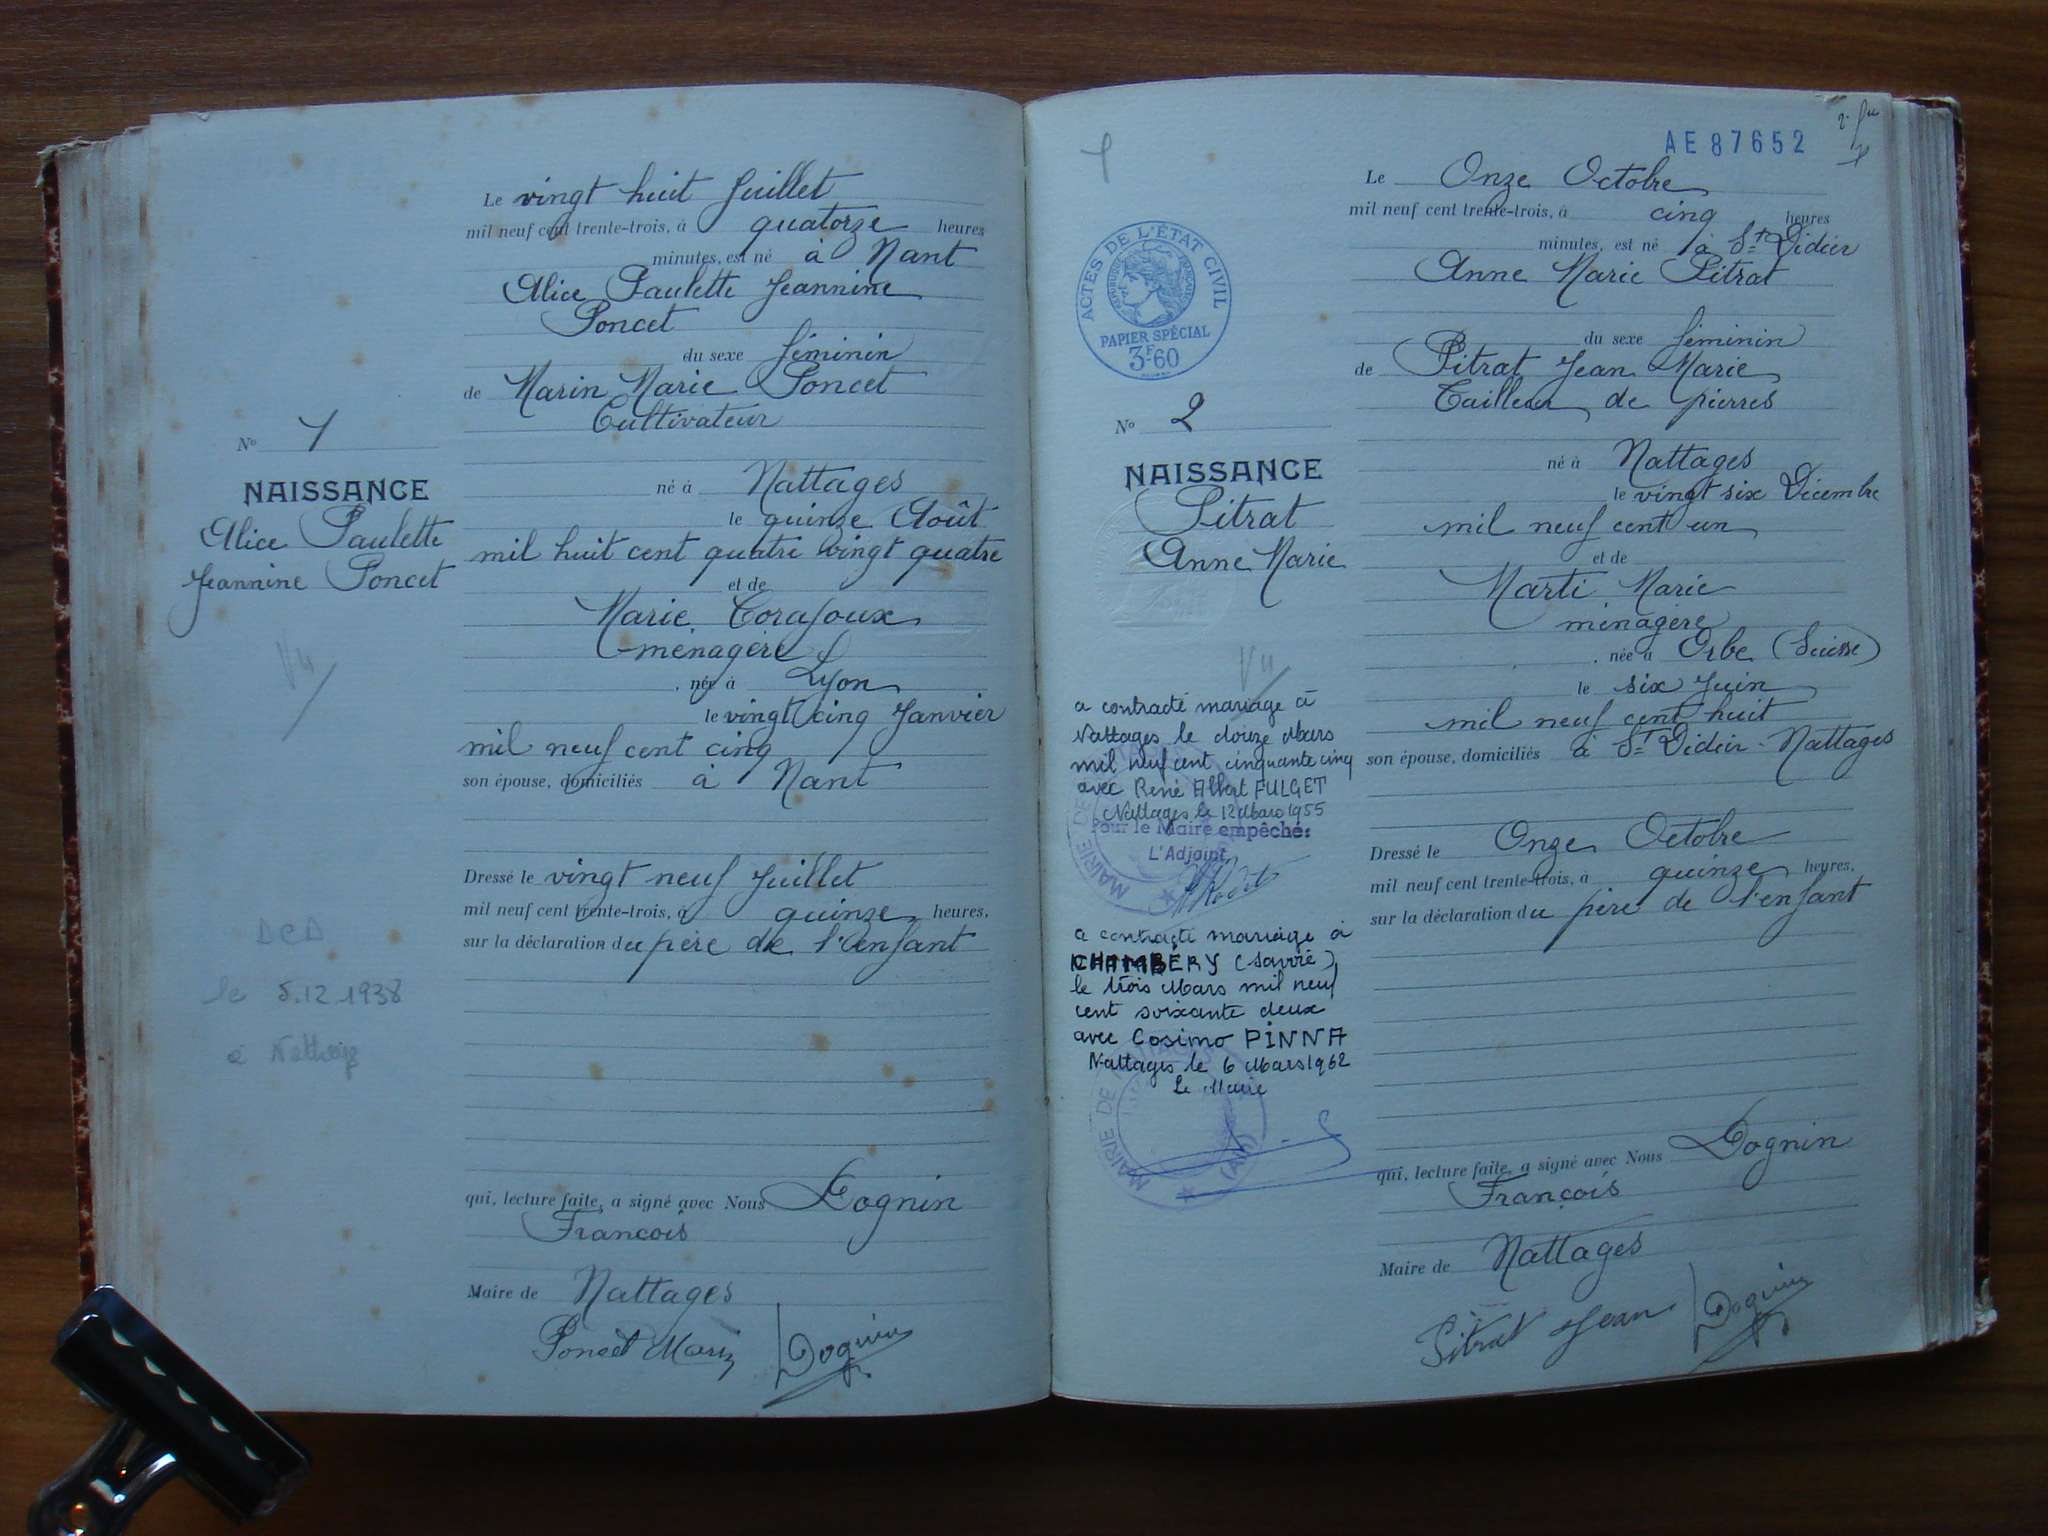 Le vingt huit Juillet
mil neuf cent trente-trois, à quatorze heures
minutes, est né à Nant
Alice Paulette Jeannine
Poncet
du sexe féminin
de Marin Marie Poncet
Cultivateur
né à Nattages
le quinze Août
mil huit cent quatre vingt quatre
et de
Marie Corajoux
ménagère
, née à Lyon
le vingt cinq Janvier
mil neuf cent cinq
son épouse, domiciliés à Nant
Dressé le vingt neuf Juillet
mil neuf cent trente-trois, à quinze heures,
sur la déclaration du père de l'enfant
qui, lecture faite, a signé avec Nous Dognin
François
Maire de Nattages
Poncet Marin Dognin
No 1
NAISSANCE
Alice Paulette
Jeannine Poncet
Vu
DCD
le 5.12.1938
à Nattages
AE 87652
ACTES DE L'ÉTAT CIVIL
PAPIER SPÉCIAL
3F60
No 2
NAISSANCE
Pitrat
Anne Marie
Vu
a contracté mariage à
Nattages le douze Mars
mil neuf cent cinquante cinq
avec René Albert FULGET
Nattages le 12 Mars 1955
Pour le Maire empêché:
L'Adjoint
a contracté mariage à
CHAMBÉRY (Savoie)
le trois Mars mil neuf
cent soixante deux
avec Cosimo PINNA
Nattages le 6 Mars 1962
Le Maire
MAIRIE DE
(AIN)
Le Onze Octobre
mil neuf cent trente-trois, à cinq heures
minutes, est né à St Didier
Anne Marie Pitrat
du sexe féminin
de Pitrat Jean Marie
Tailleur de pierres
né à Nattages
le vingt six Décembre
mil neuf cent un
et de
Marti Marie
ménagère
, née à Orbe (Suisse)
le six Juin
mil neuf cent huit
son épouse, domiciliés à St Didier - Nattages
Dressé le Onze Octobre
mil neuf cent trente-trois, à quinze heures,
sur la déclaration du père de l'enfant
qui, lecture faite, a signé avec Nous Dognin
François
Maire de Nattages
Pitrat Jean Dognin